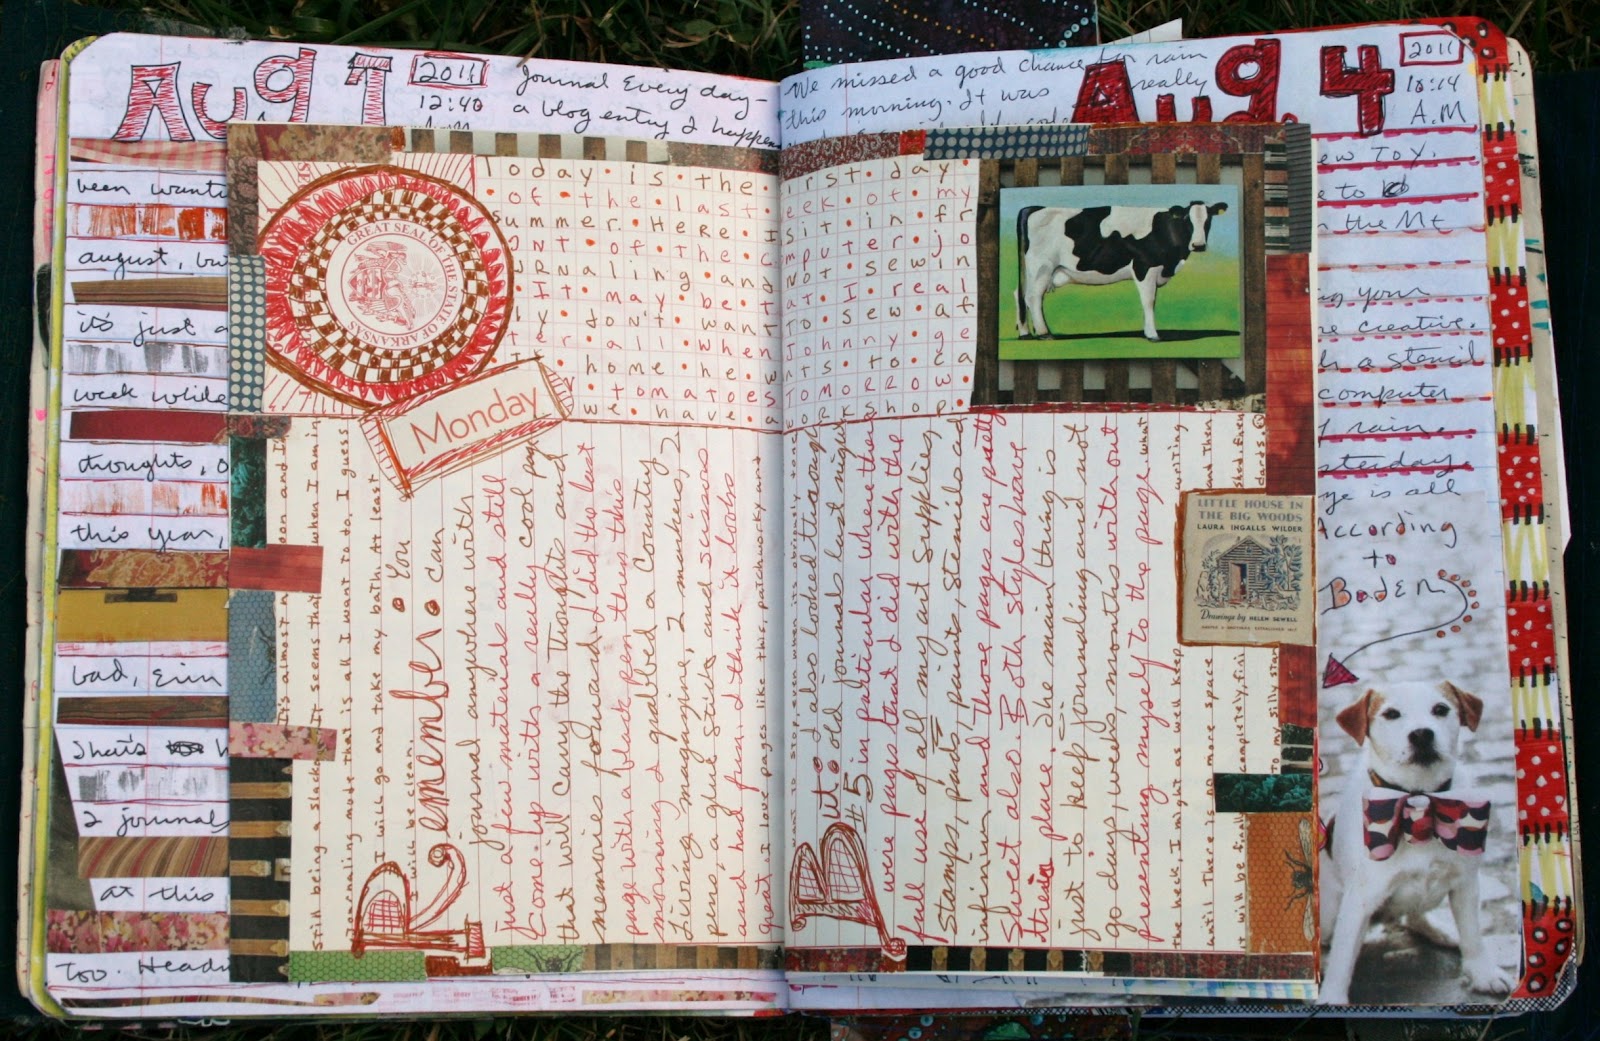 Aug 7
2011
12:40
Journal Every day -
a blog entry I happen
been want
august, bu
it's just a
week wide
thoughts, o
this year,
bad, Erin
That's
I journal
at this
Too. Head
GREAT SEAL OF THE STATE OF ARKANSAS
Monday
Today is the
of the last
summer. Here I
ont of the c
urnaling and
It may be t
ly don't want
ter all when
home he w
tomatoes
we have a
irst day
eek of my
sit in fr
mputer jo
not sewin
at. I real
to sew af
Johnny ge
nts to ca
tomorrow
workshop.
It's almost noon and I
Still being a slack It seems that when I am in
journaling mode that is all I want to do. I guess
I will go and take my bath. At least
I will be clean.
Remember You can
journal anywhere with
just a few materials and still
come up with a really cool page
that will carry the thoughts and
memories forward. I did the last
page with a black pen then this
morning I grabbed a Country
Living magazine, 2 markers, 2
pens, a glue stick and scissors
and had fun. I think it looks
great. I love pages like this, patchworky and
want to stop even when its
But I also looked through
#5 in old journals last night
were pages in particular where there
pages that I did with the
full use of all my art supplies,
Stamps, paints, stencils ad
infinium and those pages are pretty
sweet also. Both styles have
their place. The main thing is
just to keep journaling and not
go days, weeks, months with out
presenting myself to the page. What
the heck, I might as well keep writing
until There is no more space and Then
it will be finally completely, finished. Even
To my silly standards
LITTLE HOUSE
IN THE BIG WOODS
LAURA INGALLS WILDER
Drawings by HELEN SEWELL
We missed a good chance for rain
this morning. It was really
Aug. 4
2011
10:14
A.M
ew Toy.
e to
the Mt
your
re creative.
h a stencil
computer
rain.
sterday
ge is all
According
to
Boden